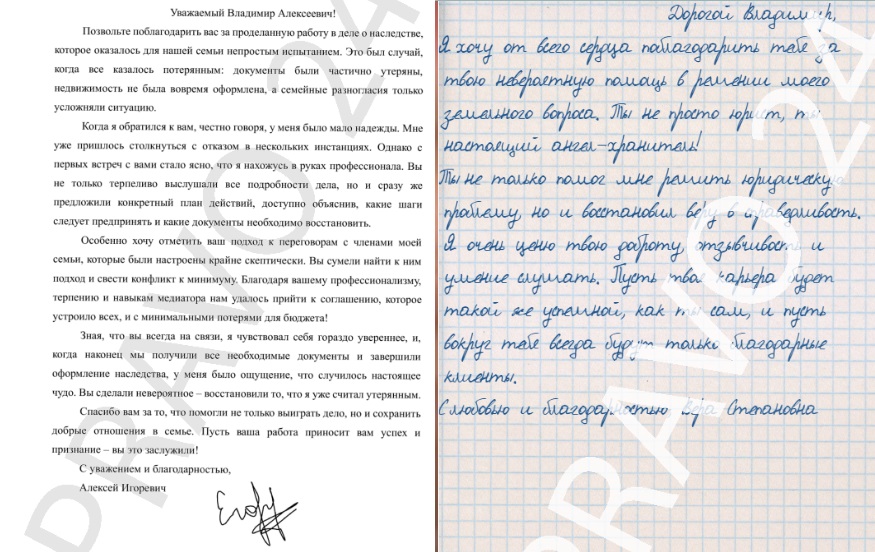 Уважаемый Владимир Алексеевич!
Позвольте поблагодарить вас за проделанную работу в деле о наследстве,
которое оказалось для нашей семьи непростым испытанием. Это был случай,
когда все казалось потерянным: документы были частично утеряны,
недвижимость не была вовремя оформлена, а семейные разногласия только
усложняли ситуацию.
Когда я обратился к вам, честно говоря, у меня было мало надежды. Мне
уже пришлось столкнуться с отказом в нескольких инстанциях. Однако с
первых встреч с вами стало ясно, что я нахожусь в руках профессионала. Вы
не только терпеливо выслушали все подробности дела, но и сразу же
предложили конкретный план действий, доступно объяснив, какие шаги
следует предпринять и какие документы необходимо восстановить.
Особенно хочу отметить ваш подход к переговорам с членами моей
семьи, которые были настроены крайне скептически. Вы сумели найти к ним
подход и свести конфликт к минимуму. Благодаря вашему профессионализму,
терпению и навыкам медиатора нам удалось прийти к соглашению, которое
устроило всех, и с минимальными потерями для бюджета!
Зная, что вы всегда на связи, я чувствовал себя гораздо увереннее, и,
когда наконец мы получили все необходимые документы и завершили
оформление наследства, у меня было ощущение, что случилось настоящее
чудо. Вы сделали невероятное – восстановили то, что я уже считал утерянным.
Спасибо вам за то, что помогли не только выиграть дело, но и сохранить
добрые отношения в семье. Пусть ваша работа приносит вам успех и
признание – вы это заслужили!
С уважением и благодарностью,
Алексей Игоревич
PRAVO 24
Дорогой Владимир,
Я хочу от всего сердца поблагодарить тебя за
твою невероятную помощь в решении моего
земельного вопроса. Ты не просто юрист, ты
настоящий ангел-хранитель!
Ты не только помог мне решить юридическую
проблему, но и восстановил веру в справедливость.
Я очень ценю твою доброту, отзывчивость и
умение слушать. Пусть твоя карьера будет
такой же успешной, как ты сам, и пусть
вокруг тебя всегда будут только благодарные
клиенты.
С любовью и благодарностью Вера Степановна
PRAVO 24